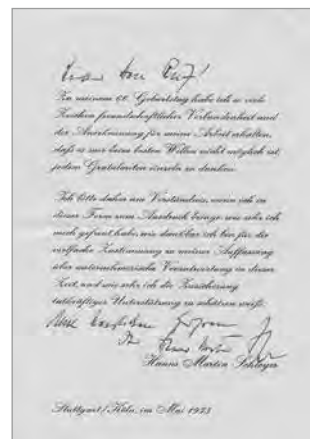 Zu meinem 60. Geburtstag habe ich so viele
Zeichen freundschaftlicher Verbundenheit und
der Anerkennung für meine Arbeit erhalten,
daß es mir beim besten Willen nicht möglich ist,
jedem Gratulanten einzeln zu danken.
Ich bitte daher um Verständnis, wenn ich in
dieser Form zum Ausdruck bringe, wie sehr ich
mich gefreut habe, wie dankbar ich bin für die
vielfache Zustimmung zu meiner Auffassung
über unternehmerische Verantwortung in dieser
Zeit, und wie sehr ich die Zusicherung
tatkräftiger Unterstützung zu schätzen weiß.
Hanns Martin Schleyer
Stuttgart/Köln, im Mai 1975